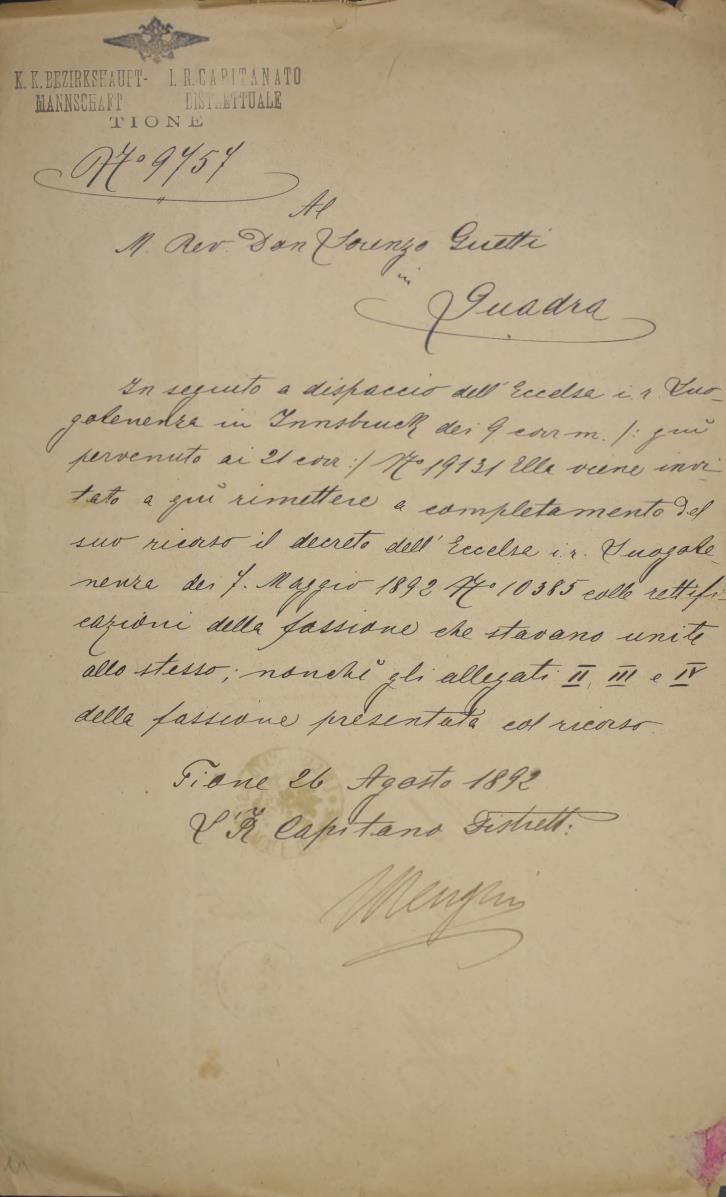 K. K. BEZIRKSHAUPT- I. R. CAPITANATO
MANNSCHAFT DISTRETTUALE
TIONE
No 9757
Al
M. Rev. Don Lorenzo Guetti
in
Quadra
In seguito a dispaccio dell' Eccelsa i. r. Luo-
gotenenza in Innsbruck dei 9 corr m. /: quì
pervenuto ai 21 corr :/ No 19131 Ella viene invi-
tato a quì rimettere a completamento del
suo ricorso il decreto dell' Eccelsa i. r. Luogote-
nenza dei 7. Maggio 1892 No 10385 colle rettifi-
cazioni della fassione che stavano unite
allo stesso; nonchè gli allegati II, III e IV
della fassione presentata col ricorso.
Tione 26 Agosto 1892
L' I R Capitano Distrett: